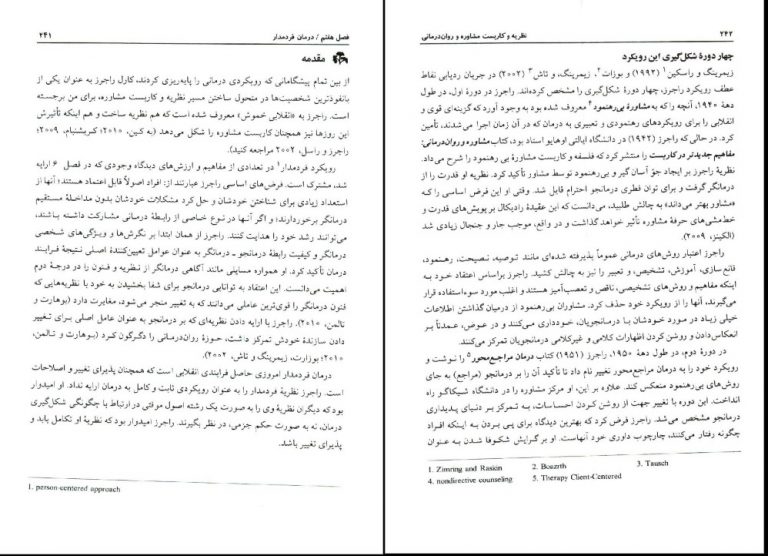 ۲۴۱ فصل هفتم / درمان فردمدار
مقدمه
از بین تمام پیشگامانی که رویکردی درمانی را پایه‌ریزی کردند، کارل راجرز به عنوان یکی از
بانفوذترین شخصیت‌ها در متحول ساختن مسیر نظریه و کاربست مشاوره، برای من برجسته
است. راجرز به «انقلابی خموش» معروف شده است که هم نظریه ساخت و هم اینکه تأثیرش
این روزها نیز همچنان کاربست مشاوره را شکل می‌دهد (به کین، ۲۰۱۰؛ کیرشنبام، ۲۰۰۹؛
راجرز و راسل، ۲۰۰۲ مراجعه کنید).
رویکرد فردمدار۱ در تعدادی از مفاهیم و ارزش‌های دیدگاه وجودی که در فصل ۶ ارایه
شد، مشترک است. فرض‌های اساسی راجرز عبارتند از: افراد اصولاً قابل اعتماد هستند؛ آنها از
استعداد زیادی برای شناختن خودشان و حل کرد مشکلات خودشان بدون مداخلهٔ مستقیم
درمانگر برخوردارند؛ و اگر آنها در نوع خاصی از رابطهٔ درمانی مشارکت داشته باشند،
می‌توانند رشد خود را هدایت کنند. راجرز از همان ابتدا بر نگرش‌ها و ویژگی‌های شخصی
درمانگر و کیفیت رابطهٔ درمانجو ـ درمانگر به عنوان عوامل تعیین‌کنندهٔ اصلی نتیجهٔ فرایند
درمان تأکید کرد. او همواره مسایلی مانند آگاهی درمانگر از نظریه و فنون را در درجهٔ دوم
اهمیت می‌دانست. این اعتقاد به توانایی درمانجو برای شفا بخشیدن به خود با نظریه‌هایی که
فنون درمانگر را قوی‌ترین عاملی می‌دانند که به تغییر منجر می‌شود، مغایرت دارد (بوهارت و
تالمن، ۲۰۱۰). راجرز با ارایه دادن نظریه‌ای که بر درمانجو به عنوان عامل اصلی برای تغییر
دادن سازندهٔ خودش تمرکز داشت، حوزهٔ روان‌درمانی را دگرگون کرد (بوهارت و تالمن،
۲۰۱۰؛ بوزارت، زیمرینگ و تاش، ۲۰۰۲).
درمان فردمدار امروزی حاصل فرایندی انقلابی است که همچنان پذیرای تغییر و اصلاحات
است. راجرز نظریهٔ فردمدار را به عنوان رویکردی ثابت و کامل به درمان ارایه نداد. او امیدوار
بود که دیگران نظریهٔ وی را به صورت یک رشته اصول موقتی در ارتباط با چگونگی شکل‌گیری
درمان، نه به صورت حکم جزمی، در نظر بگیرند. راجرز امیدوار بود که نظریهٔ او تکامل یابد و
پذیرای تغییر باشد.
1. person-centered approach
۲۴۲ نظریه و کاربست مشاوره و روان‌درمانی
چهار دورهٔ شکل‌گیری این رویکرد
زیمرینگ و راسکین۱ (۱۹۹۲) و بوزات۲، زیمرینگ، و تاش۳ (۲۰۰۲) در جریان ردیابی نقاط
عطف رویکرد راجرز، چهار دورهٔ شکل‌گیری را مشخص کرده‌اند. راجرز در دورهٔ اول، در طول
دههٔ ۱۹۴۰، آنچه را که به مشاورهٔ بی‌رهنمود۴ معروف شده بود به وجود آورد که گزینه‌ای قوی و
انقلابی را برای رویکردهای رهنمودی و تعبیری به درمان که در آن زمان اجرا می‌شدند، تأمین
کرد. در حالی که راجرز (۱۹۴۲) در دانشگاه ایالتی اوهایو استاد بود، کتاب مشاوره و روان‌درمانی:
مفاهیم جدیدتر در کاربست را منتشر کرد که فلسفه و کاربست مشاورهٔ بی رهنمود را شرح می‌داد.
نظریهٔ راجرز بر ایجاد جوّ آسان گیر و بی رهنمود توسط مشاور تأکید کرد. نظریه او قدرت را از
درمانگر گرفت و برای توان فطری درمانجو احترام قایل شد. وقتی او این فرض اساسی را کـه
«مشاور بهتر می‌داند» به چالش طلبید، می‌دانست که این عقیدهٔ رادیکال بر پویش‌های قدرت و
خط‌مشی‌های حرفهٔ مشاوره تأثیر خواهد گذاشت و در واقع، موجب جار و جنجال زیادی شد
(الکینز، ۲۰۰۹).
راجرز اعتبار روش‌های درمانی عموماً پذیرفته شده‌ای مانند توصیه، نصیحت، رهنمود،
قانع‌سازی، آموزش، تشخیص، و تعبیر را نیز به چالش کشید. راجرز براساس اعتقاد خود به
اینکه مفاهیم و روش‌های تشخیصی، ناقص و تعصب‌آمیز هستند و اغلب مورد سوءاستفاده قرار
می‌گیرند، آنها را از رویکرد خود حذف کرد. مشاوران بی‌رهنمود از درمیان گذاشتن اطلاعات
خیلی زیاد در مورد خودشان با درمانجویان، خودداری می‌کنند و در عوض، عمدتاً بر
انعکاس‌دادن و روشن کردن اظهارات کلامی و غیرکلامی درمانجویان تمرکز می‌کنند.
در دورهٔ دوم، در طول دههٔ ۱۹۵۰، راجرز (۱۹۵۱) کتاب درمان مراجع‌محور۵ را نوشت و
رویکرد خود را به درمان مراجع‌محور تغییر نام داد تا تأکید آن را بر درمانجو (مراجع) به جای
روش‌های بی‌رهنمود منعکس کند. علاوه بر این، او مرکز مشاوره را در دانشگاه شیکاگو راه
انداخت. این دوره با تغییر جهت از روشن کردن احساسات، به تمرکز بر دنیای پدیداری
درمانجو مشخص می‌شد. راجرز فرض کرد که بهترین دیدگاه برای پی بردن به اینکه افراد
چگونه رفتار می‌کنند، چارچوب داوری خود آنهاست. او بر گرایش شکوفا شدن به عنوان
1. Zimring and Raskin 2. Bozarth 3. Tausch
4. nondirective counseling 5. Therapy Client-Centered